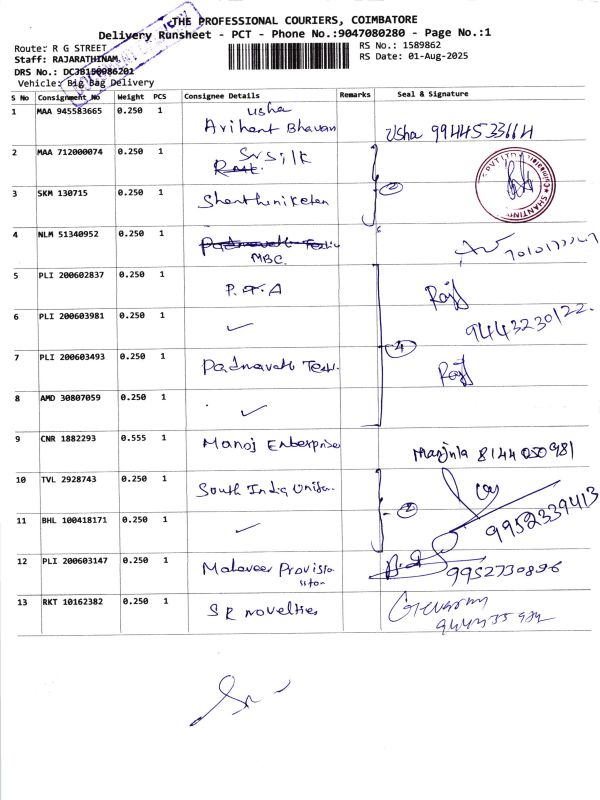 THE PROFESSIONAL COURIERS, COIMBATORE
Delivery Runsheet - PCT - Phone No.:9047080280 - Page No.:1
Route: R G STREET
RS No.: 1589862
Staff: RAJARATHINAM
RS Date: 01-Aug-2025
DRS No.: DCJB150086201
Vehicle: Big Bag Delivery
S No Consignment No Weight PCS Consignee Details Remarks Seal & Signature
1 MAA 945583665 0.250 1 Usha
Arihant Bhavan Usha 9944533664
2 MAA 712000074 0.250 1 Sr Silk
3 SKM 130715 0.250 1 Shanthiniketan 2
4 NLM 51340952 0.250 1 Padmavathi
MBC
5 PLI 200602837 0.250 1 P.T.A
6 PLI 200603981 0.250 1 ✓ 9443230122
7 PLI 200603493 0.250 1 Padmavathi Text. 4
8 AMD 30807059 0.250 1 ✓
9 CNR 1882293 0.555 1 Manoj Enterprise Manjula 8144050981
10 TVL 2928743 0.250 1 South India Unifo.
11 BHL 100418171 0.250 1 ✓ 2 9952339413
12 PLI 200603147 0.250 1 Mahaveer Provision
Store 9952730896
13 RKT 10162382 0.250 1 SR Novelties